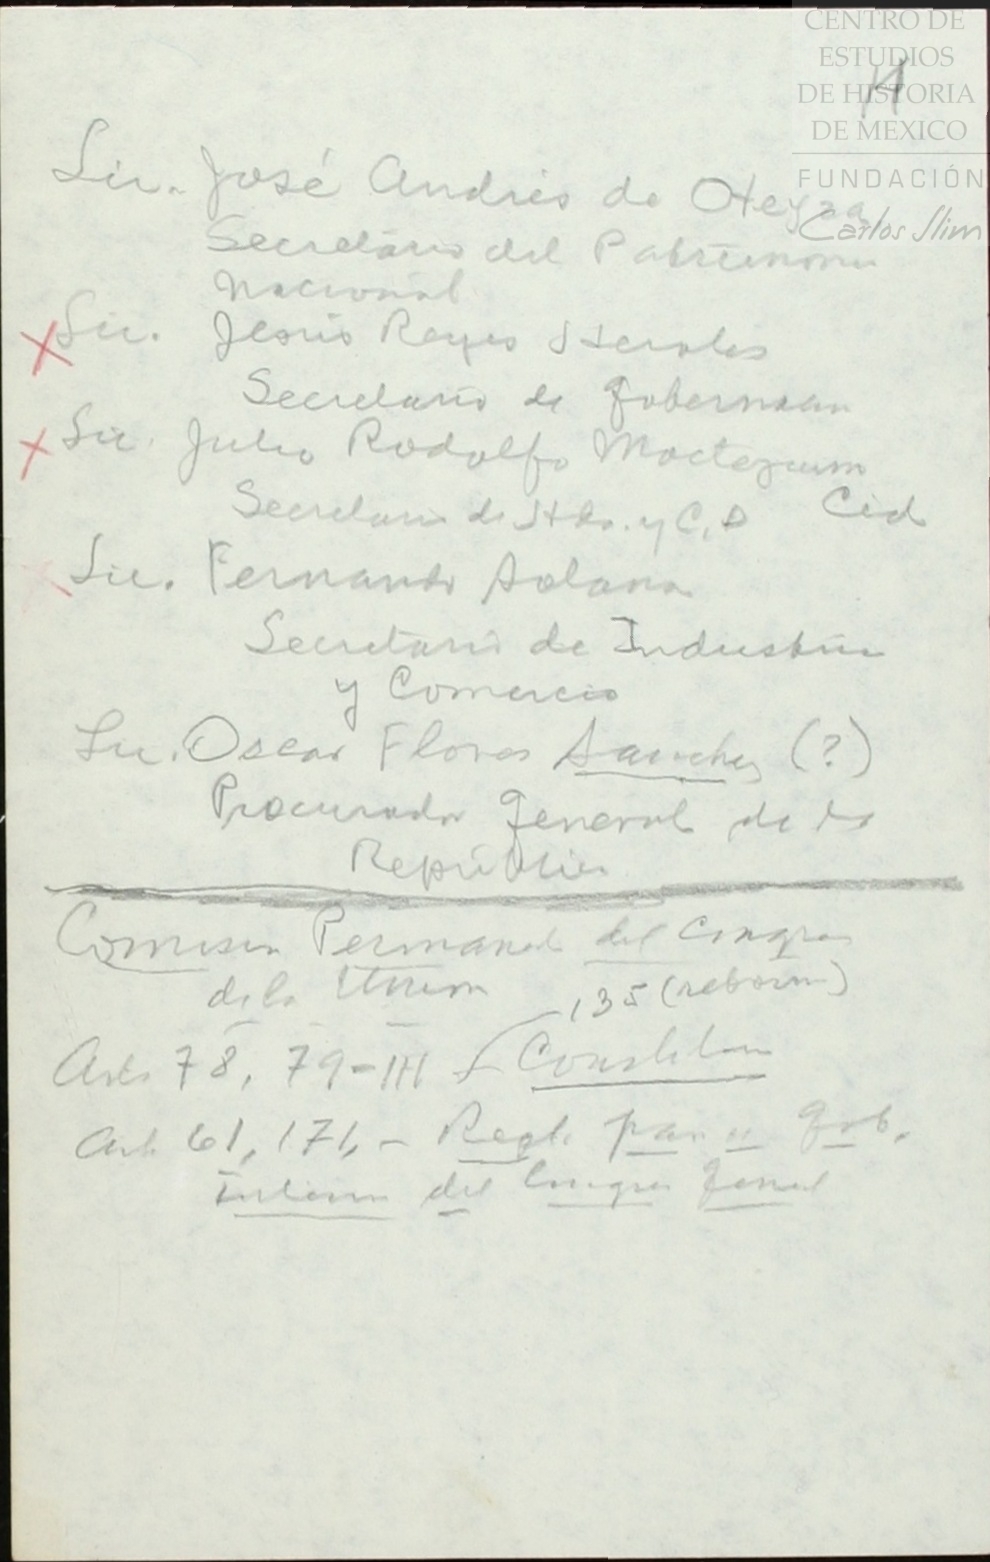 CENTRO DE
ESTUDIOS
DE HISTORIA
DE MEXICO
FUNDACIÓN
Carlos Slim
Lic. José Andrés de Oteyza
Secretario del Patrimonio
Nacional
X Lic. Jesús Reyes Heroles
Secretario de Gobernacion
X Lic. Julio Rodolfo Moctezuma
Cid
Secretario de Hda. y C.P.
Lic. Fernando Solana
Secretario de Industria
y Comercio
Lic. Oscar Flores Sanchez (?)
Procurador General de la
República
Comision Permanente del Congreso
de la Union
135 (reform)
Arts 78, 79-III Constitucion
Art. 61, 171, - Regl. para el Gob.
Interior del Congreso General